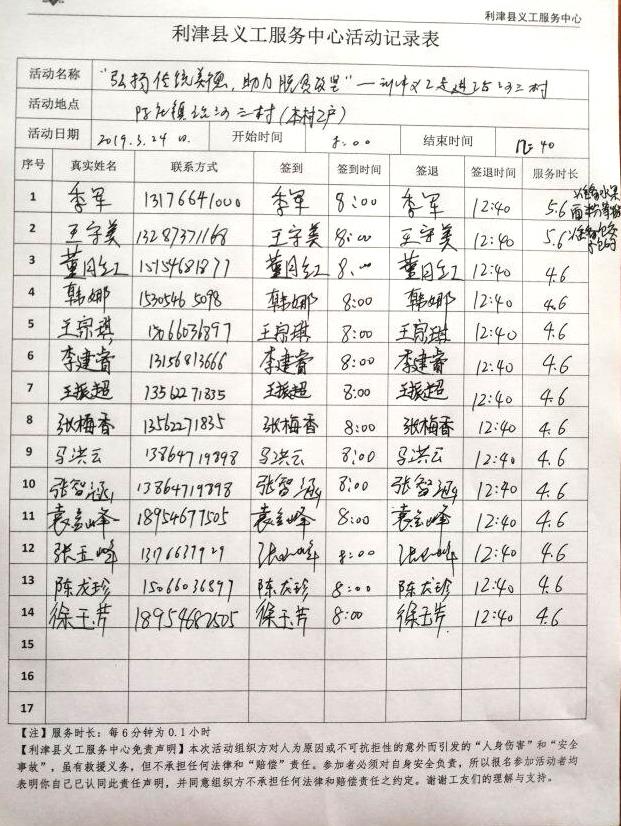 利津县义工服务中心
利津县义工服务中心活动记录表
活动名称 "弘扬传统美德，助力脱贫攻坚"
活动地点 三村(本村2户)
活动日期 2019.3.24日 开始时间 8:00 结束时间 12:40
序号 真实姓名 联系方式 签到 签到时间 签退 签退时间 服务时长
1 季军 13176641000 季军 8:00 季军 12:40 5.6
2 王守美 13287371168 王守美 8:00 王守美 12:40 5.6
3 董月红 15154681877 董月红 8:00 董月红 12:40 4.6
4 韩娜 1530546 5098 韩娜 8:00 韩娜 12:40 4.6
5 王宗琪 15066036897 王宗琪 8:00 王宗琪 12:40 4.6
6 李建睿 13156813666 李建睿 8:00 李建睿 12:40 4.6
7 王振超 13562271835 王振超 8:00 王振超 12:40 4.6
8 张梅香 13562271835 张梅香 8:00 张梅香 12:40 4.6
9 马洪云 13864719898 马洪云 8:00 马洪云 12:40 4.6
10 张智涵 13864719898 张智涵 8:00 张智涵 12:40 4.6
11 袁玉峰 18954677505 袁玉峰 8:00 袁玉峰 12:40 4.6
12 张玉峰 8:00 12:40 4.6
13 陈龙珍 15066036897 陈龙珍 8:00 陈龙珍 12:40 4.6
14 徐玉芹 18954682505 徐玉芹 8:00 徐玉芹 12:40 4.6
15
16
17
【注】服务时长：每6分钟为0.1小时
【利津县义工服务中心免责声明】本次活动组织方对人为原因或不可抗拒性的意外而引发的"人身伤害"和"安全
事故"，虽有救援义务，但不承担任何法律和"赔偿"责任。参加者必须对自身安全负责，所以报名参加活动者均
表明你自己已认同此责任声明，并同意组织方不承担任何法律和赔偿责任之约定。谢谢工友们的理解与支持。